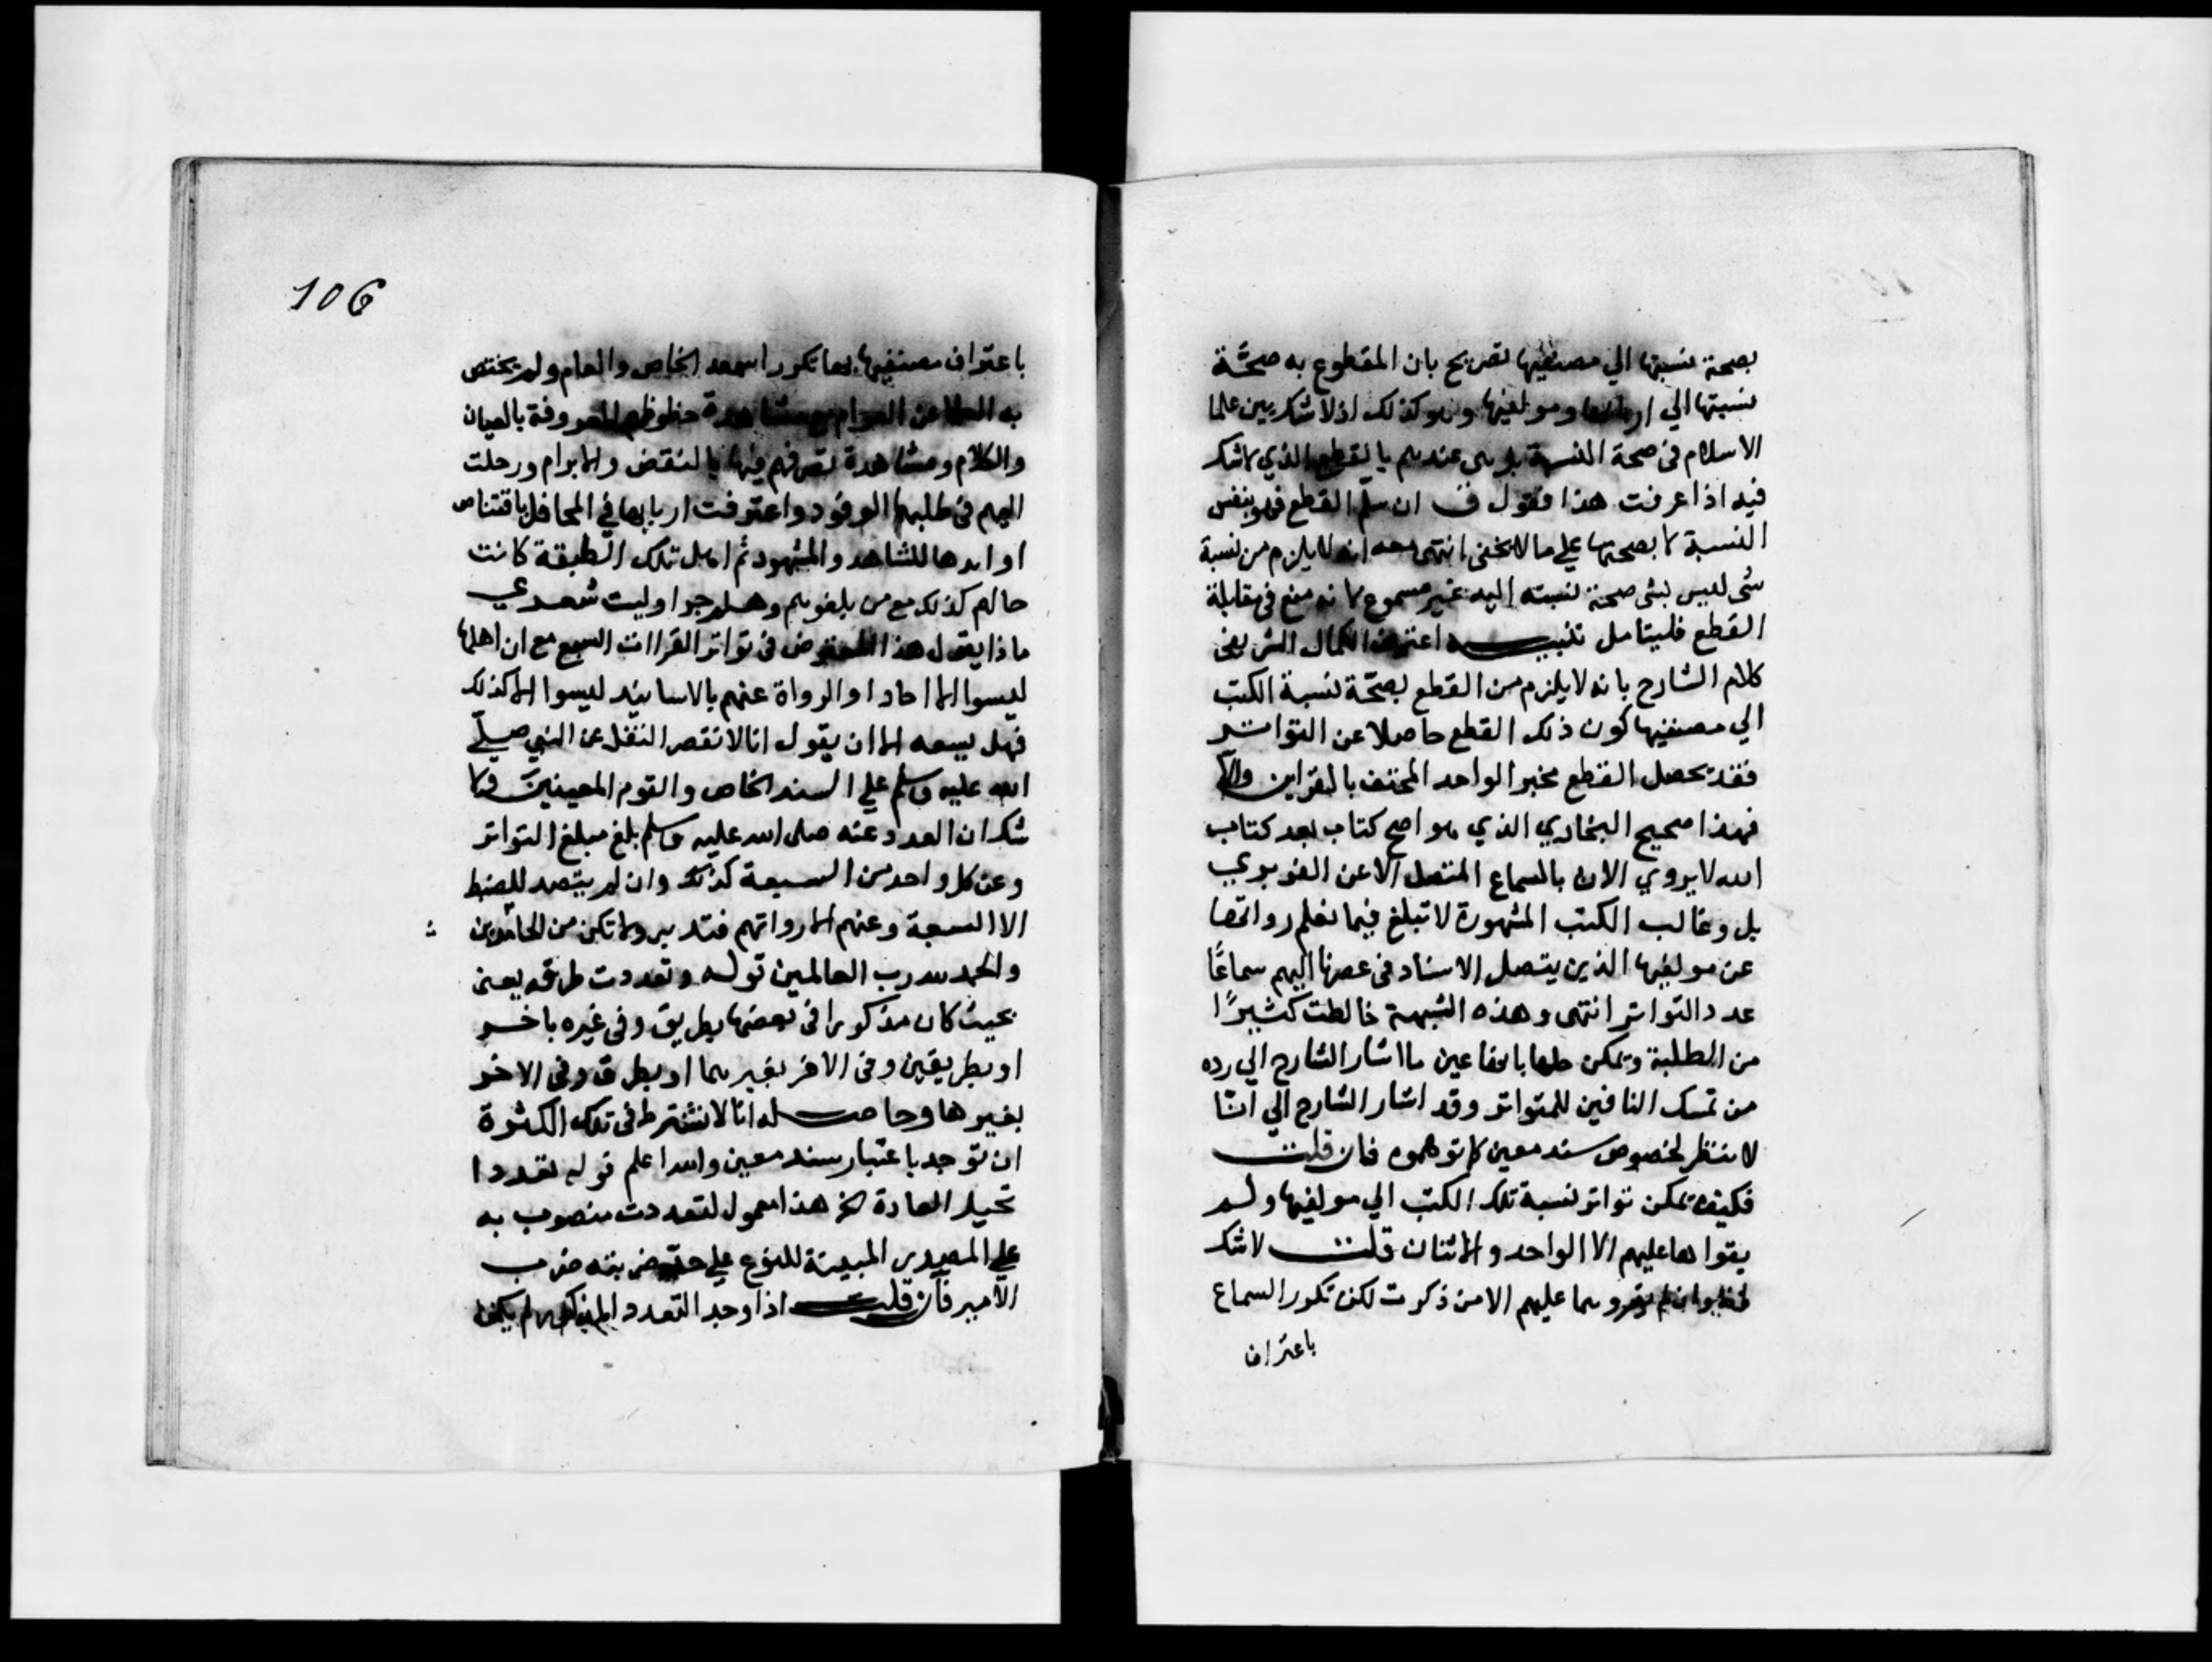 بصحة نسبتها الي مصنفيها تصريح بان المقطوع به صحّة
نسبتها الي اربابها ومولفيها وهو كذلك اذ لا شك بين علما
الاسلام في صحة النسبة بل هي عندهم بالقطع الذي لا شك
فيه اذا عرفت هذا فقول ق ان سلم القطع فهو بنفس
النسبة لا بصحتها علي ما لا يخفي انتهي معه انه لا يلزم من نسبة
شي لليس بشي صحة نسبته اليه غير مسموع لانه منع في مقابلة
القطع فليتامل تنبيه اعترض الكمال الشريفي
كلام الشارح بانه لا يلزم من القطع بصحّة نسبة الكتب
الي مصنفيها كون ذلك القطع حاصلا عن التواتر
فقد يحصل القطع بخبر الواحد المحتف بالقراين والا
فهذا صحيح البخاري الذي هو اصح كتاب بعد كتاب
الله لا يروي الان بالسماع المتصل الا عن الفربري
بل وغالب الكتب المشهورة لا تبلغ فيما نعلم رواتها
عن مولفيها الذين يتصل الاسناد في عصرنا اليهم سماعًا
عدد التواتر انتهي وهذه الشبهة خالطت كثيرًا
من الطلبة ويمكن حلها بانها عين ما اشار الشارح الي رده
من تمسك النافين للمتواتر وقد اشار الشارح الي انّا
لا ننظر لخصوص سند معين كما توهموه فان قلت
فكيف يمكن تواتر نسبة تلك الكتب الي مولفيها ولم
يقراها عليهم الا الواحد والاثنان قلت لا شك
وان لم يقروها عليهم الا من ذكرت لكن تكرر السماع
باعتراف
106
باعتراف مصنفيها بها تكررا سمعه الخاص والعام ولم يختص
به العوام مشاهدة حظوظهم المعروفة بالعيان
والكلام ومشاهدة تصرفهم فيها بالنقض والابرام ورحلت
اليهم في طلبها الوفود واعترفت اربابها في المحافل باقتناص
اوابدها للشاهد والمشهود ثم اهل تلك الطبقة كانت
حالهم كذلك مع من يلغوهم وهلم جرا وليت شعري
ماذا يقول هذا المعترض في تواتر القراات السبع مع ان اهلها
ليسوا الا احادا والرواة عنهم بالاسانيد ليسوا الا كذلك
فهل يسعه الا ان يقول انا لا نقصر النقل عن النبي صلّي
الله عليه وسلم علي السند الخاص والقوم المعينين ولا
شك ان العدد عنه صلي الله عليه وسلم بلغ مبلغ التواتر
وعن كل واحد من السبعة كذلك وان لم يتصد للضبط
الا السبعة وعنهم الا رواتهم فتدبر ولا تكن من الجامدين
والحمد لله رب العالمين قوله وتعددت طرقه يعني
بحيث كان مذكورا في بعضها بطريق وفي غيره باخر
او بطريقين وفي الاخر بغيرهما او بطرق وفي الاخر
بغيرها وحاصله انا لا نشترط في تلك الكثرة
ان توجد باعتبار سند معين والله اعلم قوله تعددا
تحيل العادة الخ هذا معمول لتعددت منصوب به
علي المصدرية المبينة للنوع علي حد ضربته ضرب
الامير فان قلت اذا وجد التعدد المذكور لم يكن